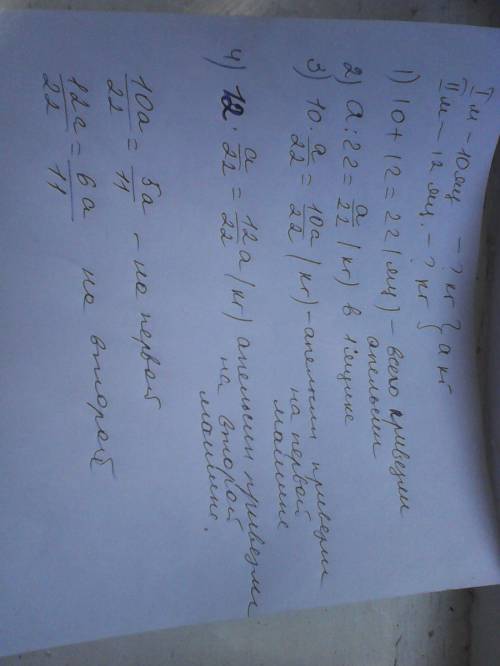 I м – 10 ящ – ? кг } a кг
II м – 12 ящ. – ? кг
1) 10 + 12 = 22 (ящ) – всего привезли
апельсин
2) a : 22 = a/22 (кг) в 1 ящике
3) 10 · a/22 = 10a/22 (кг) – апельсин привезли
на первой
машине
4) 12 · a/22 = 12a/22 (кг) апельсин привезли
на второй
машине.
10a/22 = 5a/11 – на первой
12a/22 = 6a/11 на второй